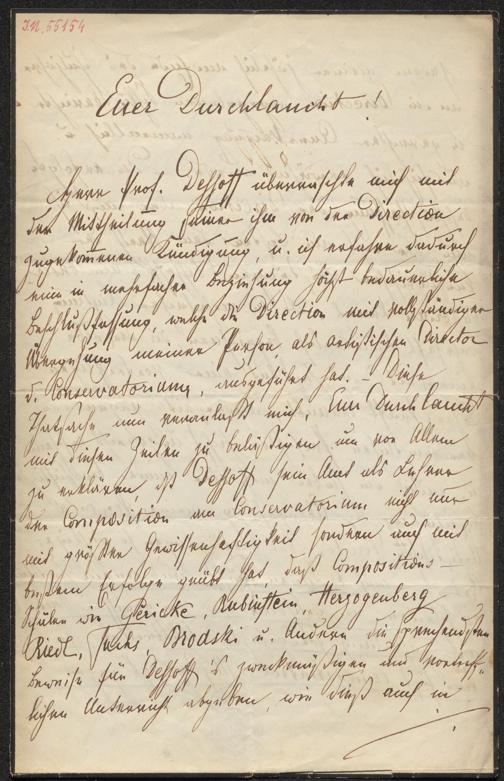 J.N. 55154
Euer Durchlaucht!
Herr Prof. Dessoff überraschte mich mit
der Mittheilung seiner ihm von der Direction
zugekommenen Kündigung, u. ich erfahre dadurch
eine in mehrfacher Beziehung höchst bedauerliche
Beschlußfassung, welche die Direction mit vollständiger
Übergehung meiner Person, als artistischen Director
d. Conservatoriums, ausgeführt hat. – Diese
Thatsache nun veranlaßt mich, Euer Durchlaucht
mit diesen Zeilen zu belästigen um vor Allem
zu erklären, daß Dessoff sein Amt als Lehrer
der Composition am Conservatorium nicht nur
mit größter Gewissenhaftigkeit sondern auch mit
bestem Erfolge geübt hat, daß Compositions-
Schüler wie Gericke, Rubinstein, Herzogenberg
Riedl, Fuchs, Brodski u. Andere die sprechendsten
Beweise für Dessoff's zweckmäßigen und vortreff-
lichen Unterricht abgeben, wie dieß auch in